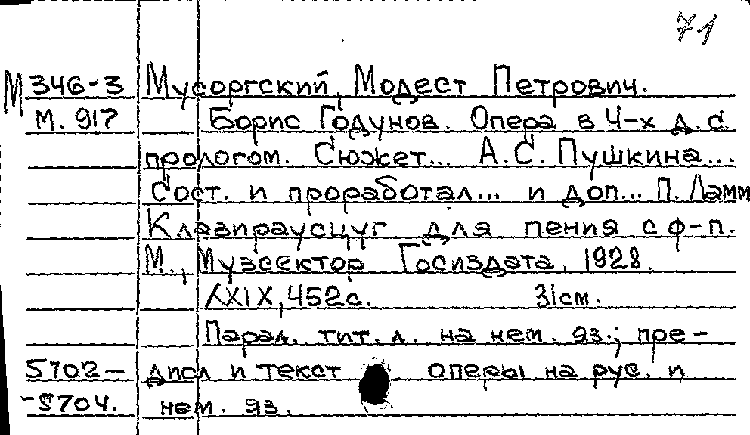 71
М 346-3 Мусоргский, Модест Петрович.
М. 917 Борис Годунов. Опера в 4-х д. с
прологом. Сюжет... А.С. Пушкина...
Сост. и проработал... и доп... П. Ламм
Клавираусцуг для пения с ф-п.
М., Музсектор Госиздата, 1928.
XXIX, 452с. 31см.
Парал. тит. л. на нем. яз.; пре-
5702- дисл и текст оперы на рус. и
-5704. нем. яз.